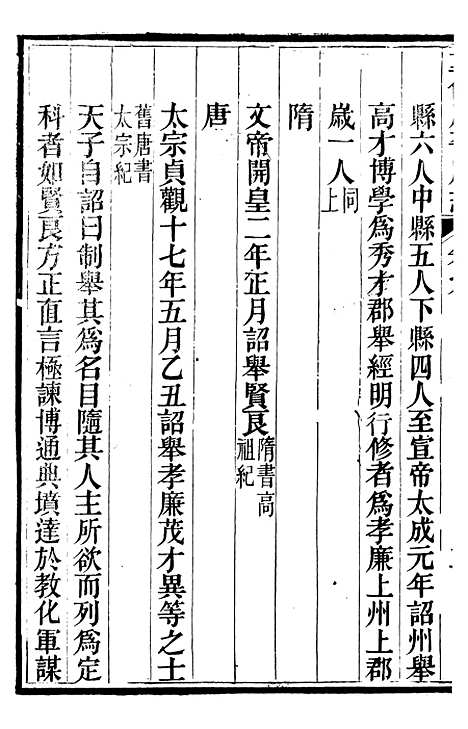 縣六人中縣五人下縣四人至宣帝太成元年詔州舉
高才博學爲秀才郡舉經明行修者爲孝廉上州上郡
歲一人同上
隋
文帝開皇二年正月詔舉賢良隋書高祖紀
唐
太宗貞觀十七年五月乙丑詔舉孝廉茂才異等之士
舊唐書太宗紀
天子自詔曰制舉其爲名目隨其人主所欲而列爲定
科者如賢良方正直言極諫博通典墳達於教化軍謀